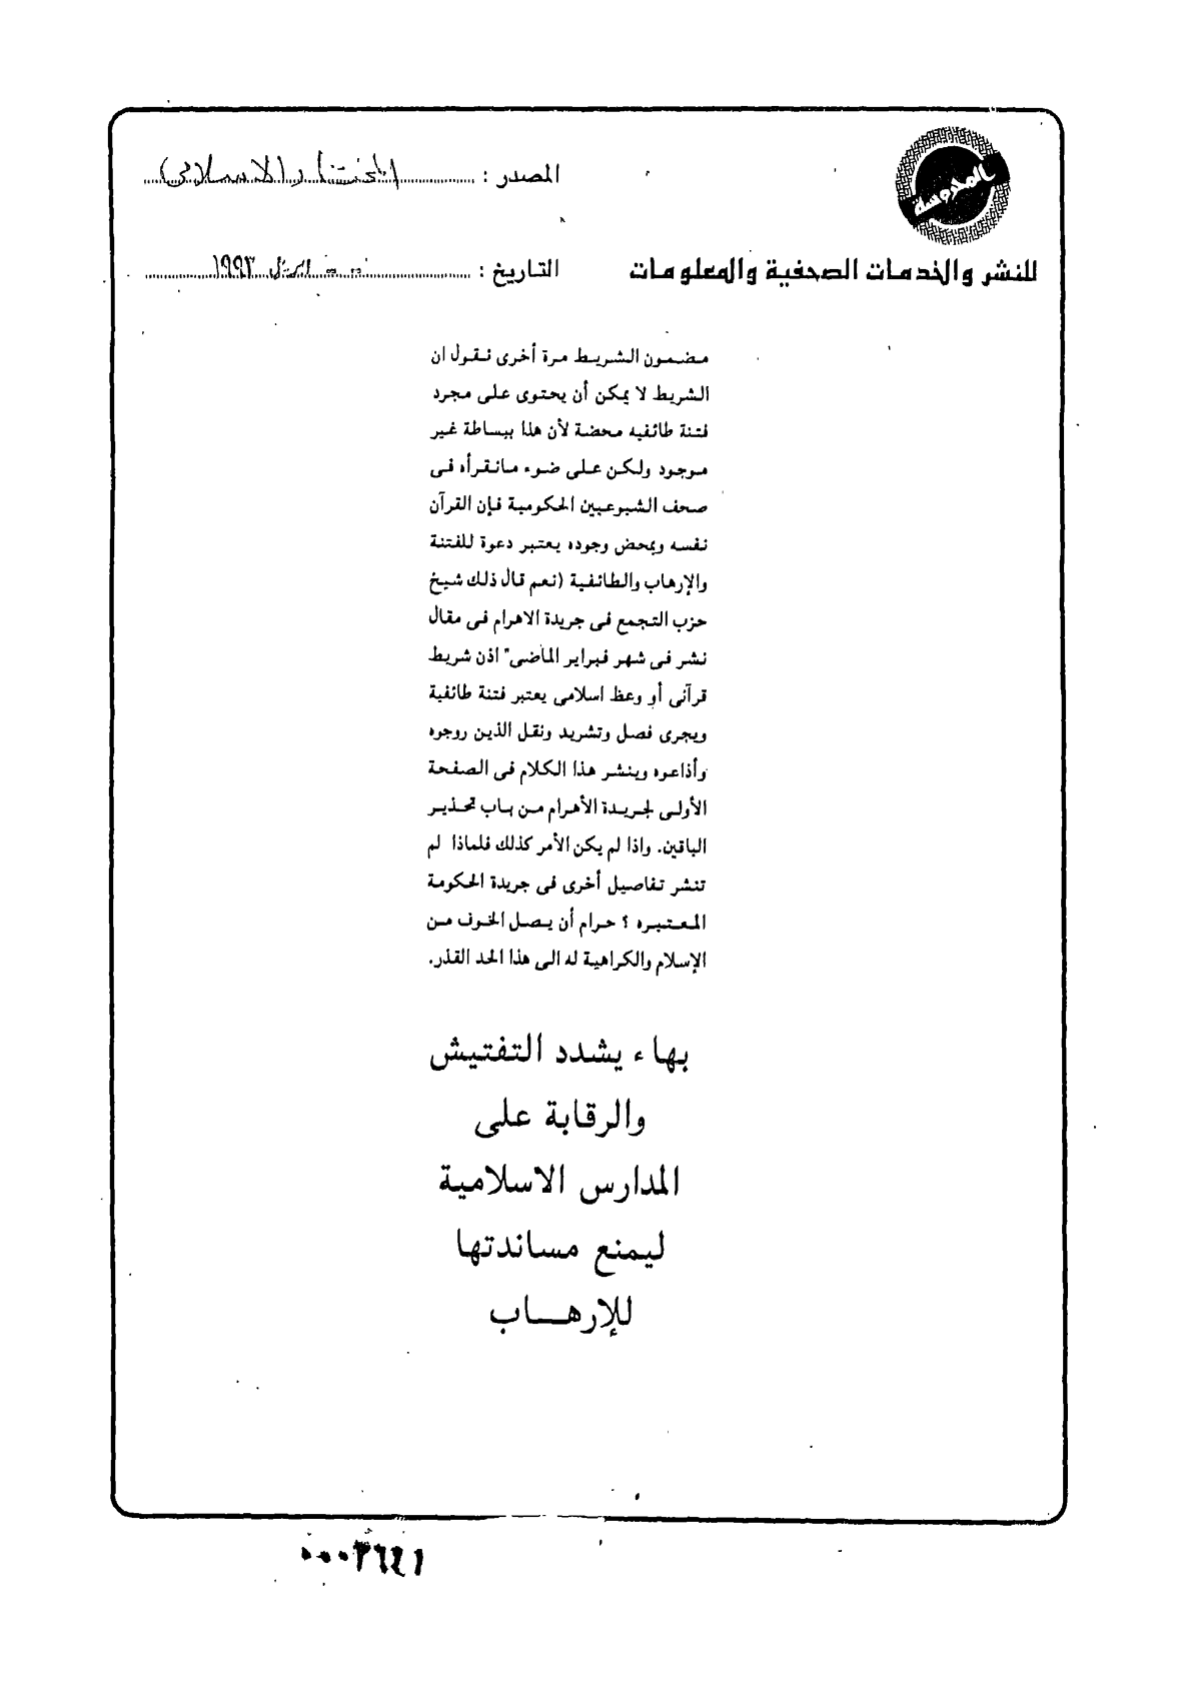 المحروسة
المصدر : المختار الاسلامى
للنشر والخدمات الصحفية والمعلومات
التاريخ : ابريل ١٩٩٣
مضمون الشريط مرة أخرى نقول ان
الشريط لا يمكن أن يحتوى على مجرد
فتنة طائفيه محضة لأن هذا ببساطة غير
موجود ولكن على ضوء مانقرأه فى
صحف الشيوعيين الحكومية فإن القرآن
نفسه وبمحض وجوده يعتبر دعوة للفتنة
والإرهاب والطائفية (نعم قال ذلك شيخ
حزب التجمع فى جريدة الاهرام فى مقال
نشر فى شهر فبراير الماضى" اذن شريط
قرآنى أو وعظ اسلامى يعتبر فتنة طائفية
ويجرى فصل وتشريد ونقل الذين روجوه
وأذاعوه وينشر هذا الكلام فى الصفحة
الأولى لجريدة الأهرام من باب تحذير
الباقين. واذا لم يكن الأمر كذلك فلماذا لم
تنشر تفاصيل أخرى فى جريدة الحكومة
المعتبره ؟ حرام أن يصل الخوف من
الإسلام والكراهية له الى هذا الحد القذر.
بهاء يشدد التفتيش
والرقابة على
المدارس الاسلامية
ليمنع مساندتها
للإرهــاب
٠٠٠٣٦٤١